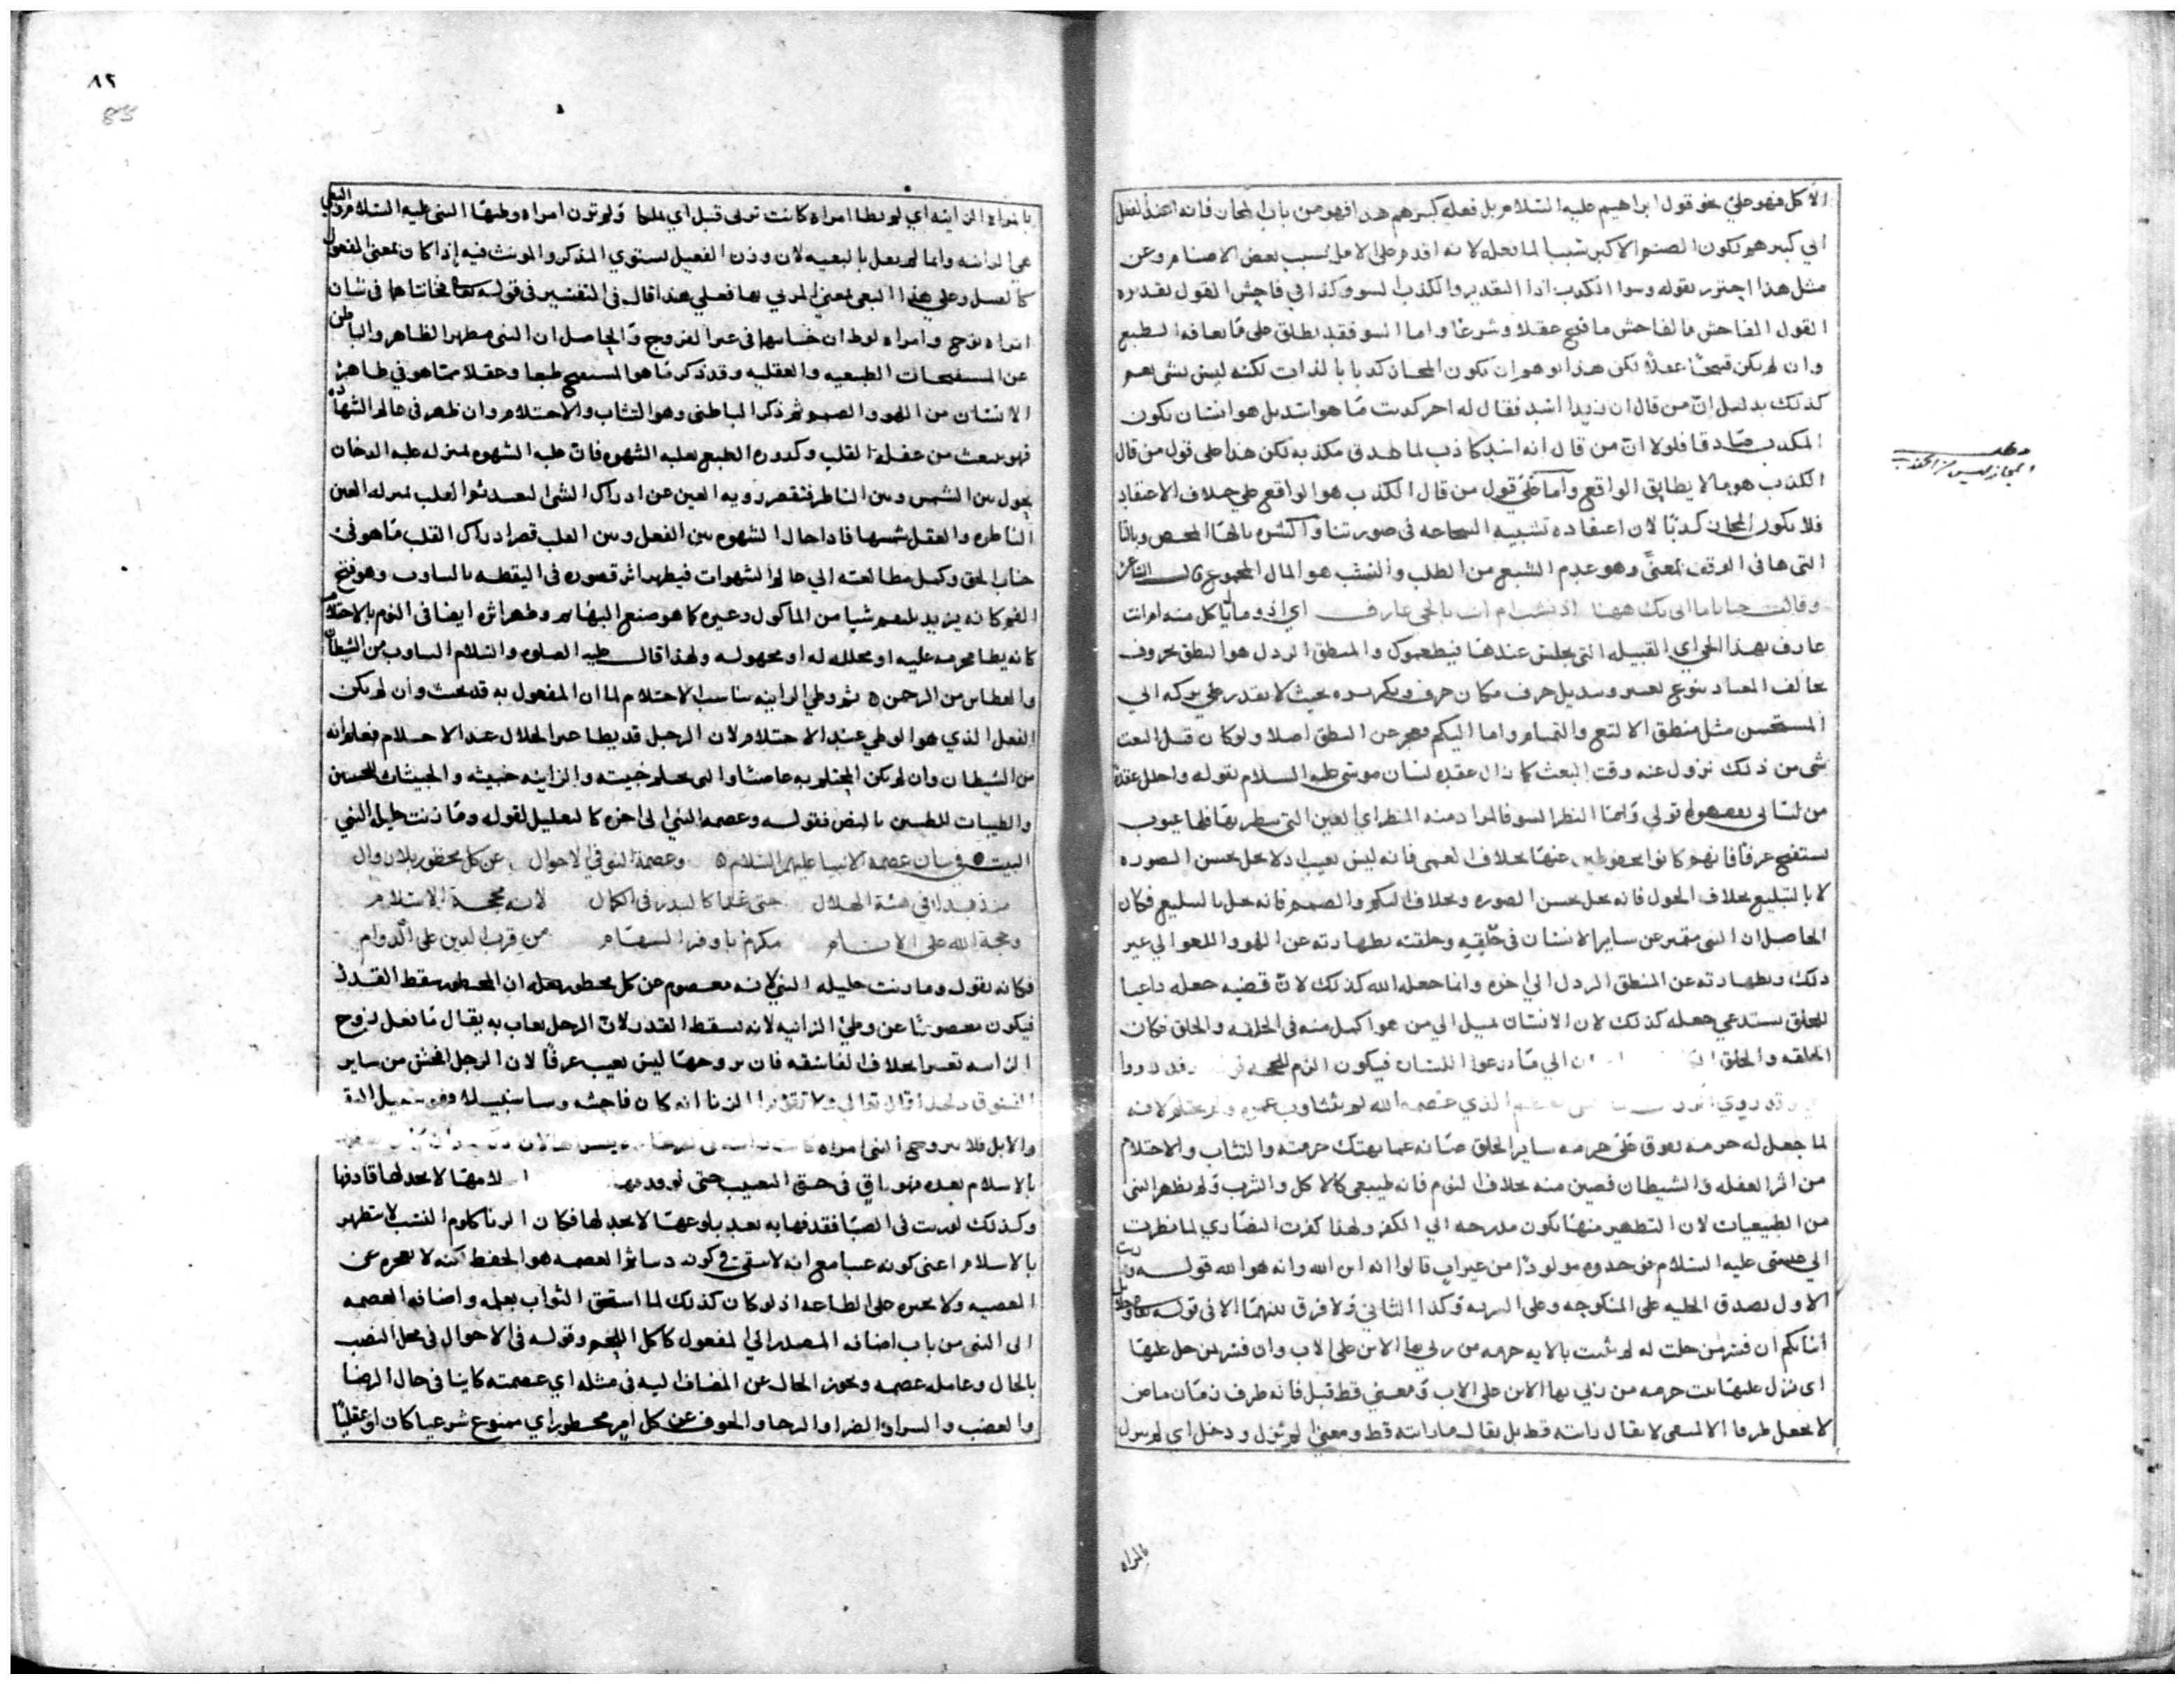 الاكل فهو على نحو قول ابراهيم عليه السلام بل فعله كبيرهم هذا فهو من باب المجاز فانه اسند الفعل
الى كبيرهم لكون الصنم الاكبر سببا لما فعله لانه اقدم على الامر بسبب بعض الاصنام وعن
مثل هذا احترز بقوله وسوا الكذب اذا التقدير والكذب السو وكذا في فاحش القول تقديره
القول الفاحش فالفاحش ما قبح عقلا وشرعا واما السو فقد يطلق على ما يعافه الطبع
وان لم يكن قبيحا عقلا لكن هذا يوهم ان يكون المجاز كذبا بالذات لكنه ليس بشي
كذلك بدليل ان من قال ان زيدا اسد فقال له اخر كذبت ما هو اسد بل هو انسان يكون
المكذب صادقا فلولا ان من قال انه اسد كاذب لما صدق مكذبه لكن هذا على قول من قال
الكذب هو ما لا يطابق الواقع واما على قول من قال الكذب هو الواقع على خلاف الاعتقاد
فلا يكون المجاز كذبا لان اعتقاده تشبيه الشجاعة في صورتنا والشره بالها المحض وبالتا
التي ها في الوقف بمعنى وهو عدم الشبع من الطلب والنشب هو المال المجموع قال الشاعر
وقالت حنانا ما اتى بك ههنا اذو نشب ام انت بالحي عارف اي اذو مال ياكل منه ام انت
عارف بهذا الحي اي القبيلة التي تجلس عندها فيطعموك والمنطق الرذل هو النطق بحروف
تخالف المعتاد بنوع تغيير وتبديل حرف مكان حرف وتكريره بحيث لا يقدر على تركه الى
المستحسن مثل منطق الالثغ والتمتام واما البكم فهو عن النطق اصلا ولو كان قبل البعث
شي من ذلك تزول عنه وقت البعث كما زال عقدة لسان موسى عليه السلام بقوله واحلل عقدة
من لساني يفقهوا قولي واما النظر السو فالمراد منه المنظر اي العين التي ينظر بها فلها عيوب
تستقبح عرفا فانهم كانوا محفوظين عنها بخلاف العمى فانه ليس بعيب اذ لا يخل بحسن الصورة
لا بالتبليغ بخلاف الحول فانه يخل بحسن الصورة وبخلاف البكم والصمم فانه يخل بالتبليغ فكان
الحاصل ان النبي متميز عن ساير الانسان في خلقه وخلقته بطهارته عن اللهو واللغو الى غير
ذلك وبطهارته عن المنطق الرذل الى اخره وانما جعله الله كذلك لان قضية جعله داعيا
للخلق يستدعي جعله كذلك لان الانسان يميل الى من هو اكمل منه في الخلقة والخلق فكان
الخلقه والخلق الى ما يدعوا اللسان فيكون الزم للحجة وقد رووا
وقد روي الذي عصمه الله لم يتثاوب عمره ولم يحتلم لانه
لما جعل له حرمة تفوق على حرمة ساير الخلق صانه عما يهتك حرمته والتثاب والاحتلام
من اثر الغفلة والشيطان فصين منه بخلاف النوم فانه طبيعي كالاكل والشرب ولم يطهر النبي
من الطبيعيات لان التطهير منها يكون مدرجه الى الكفر ولهذا كفرت النصارى لما نظرت
الى عيسى عليه السلام فوجدوه مولودا من غير اب قالوا انه ابن الله وانه هو الله قوله
الاول يصدق الحليلة على المنكوحة وعلى السرية وكذا الثاني ولا فرق بينهما الا في قوله تعالى وحلايل
ابنائكم ان فسر بمن حلت له لم تثبت بالاية حرمة من زنى بها الابن على الاب وان فسر بمن حل عليها
اى نزل عليها ثبت حرمة من زنى بها الابن على الاب ومعنى قط قبل فانه ظرف زمان ماض
لا يجعل ظرفا الا لمنفى لا يقال رايته قط بل يقال ما رايته قط ومعنى لم تنزل ودخل اي لم ينزل
بالمراه
مطلب
المجاز ليس من الكذب
٨٢
83
بالمراه الزانية اي لم يطا امراه كانت تزني قبل اي قبلها ولم تزن امراه وطيها النبي عليه السلام
هي الزانية وانما لم يقل بالبغية لان وزن الفعيل يستوي المذكر والمونث فيه اذا كان بمعنى المفعول
كالغسيل وعلى هذا البغي بمعنى المزني بها فعلى هذا قال في التفسير في قوله تعالى فخانتاهما في شان
امراة نوح وامراة لوط ان خيانتهما في غير الفروج والحاصل ان النبي مطهر الظاهر والباطن
عن المستقبحات الطبعيه والعقليه وقد ذكر ما هو المستقبح طبعا وعقلا مما هو في ظاهر
الانسان من اللهو والصمم ثم ذكر الباطني وهو التثاب والاحتلام وان ظهر في عالم الشهاده
فهو ينبعث من غفلة القلب وكدورة الطبع بغلبة الشهوه فان غلبة الشهوه بمنزلة غلبة الدخان
يحول بين الشمس وبين الناظر فتقصر روية العين عن ادراك الشى البعيد ثم القلب بمنزلة العين
الناظره والعقل شمسها فاذا حال الشهوه بين العقل وبين القلب قصر ادراك القلب ما هو في
جناب الحق وكمل مطالعته الى عالم الشهوات فيظهر اثر قصوره في اليقظه بالتثاوب وهو فتح
الفم كانه يريد يلتقم شيا من الماكول وغيره كما هو صنيع البهايم وظهر اثره ايضا في النوم بالاحتلام
كانه يطا محرمه عليه او محلله له او مجهوله ولهذا قال عليه الصلوه والسلام التثاوب من الشيطان
والعطاس من الرحمن ثم وطي الزانيه يناسب الاحتلام لما ان المفعول به قد بحث وان لم يكن
الفعل الذي هو الوطي عند الاحتلام لان الرجل قد يطا غير الحلال عند الاحتلام فعلم انه
من الشيطان وان لم يكن المحتلم به عاصيا والنبي يحلم خبيثه والزانيه خبيثه والخبيثات للخبيثين
والطيبات للطيبين بالنص فقوله وعصمة النبي الى اخره كالتعليل لقوله وما زنت حليلة النبي
البيت في بيان عصمة الانبيا عليهم السلام وعصمة النبي في الاحوال عن كل محظور بلا زوال
منذ بدا في هيئة الهلال حتى غدا كالبدر في الكمال لانه محجة الاسلام
وحجة الله على الانام مكرم باوفر السهام من قرب الدين على الدوام
فكانه يقول وما زنت حليلة النبي لانه معصوم عن كل محظور بعله ان المحظور يسقط القدر
فيكون معصوما عن وطئ الزانيه لانه يسقط القدر لان الرجل يعاب به يقال ما بعل زوج
الزانيه تعييرا بخلاف الفاسقه فان تزوجها ليس بعيب عرفا لان الزنا افحش من ساير
الفسوق ولهذا قال تعالى ولا تقربوا الزنا انه كان فاحشه وسا سبيلا
والابل فلا يتزوج النبي امراه
بالاسلام بعده فهو باق في حق التعييب حتى لا يحد لها قاذفها
وكذلك لو زنت في الصبا فقذفها به بعد بلوغها لا يحد لها فكان الزنا كلوم النسب لا يتطهر
بالاسلام اعنى كونه عيبا مع انه لا يبقى في كونه العصمه هو الحفظ لكنه لا يعجزه عن
المعصيه ولا يجبره على الطاعه اذ لو كان كذلك لما استحق الثواب بعمله واضافة العصمه
الى النبي من باب اضافة المصدر الى المفعول كاكل اللحم وقوله في الاحوال في محل النصب
بالحال وعامله عصمه ويجوز الحال عن المضاف اليه في مثله اي عصمته كاينا في حال الرضا
والغضب والسرا والضرا والرجا والخوف عن كل امر محظور اي ممنوع شرعيا كان او عقليا